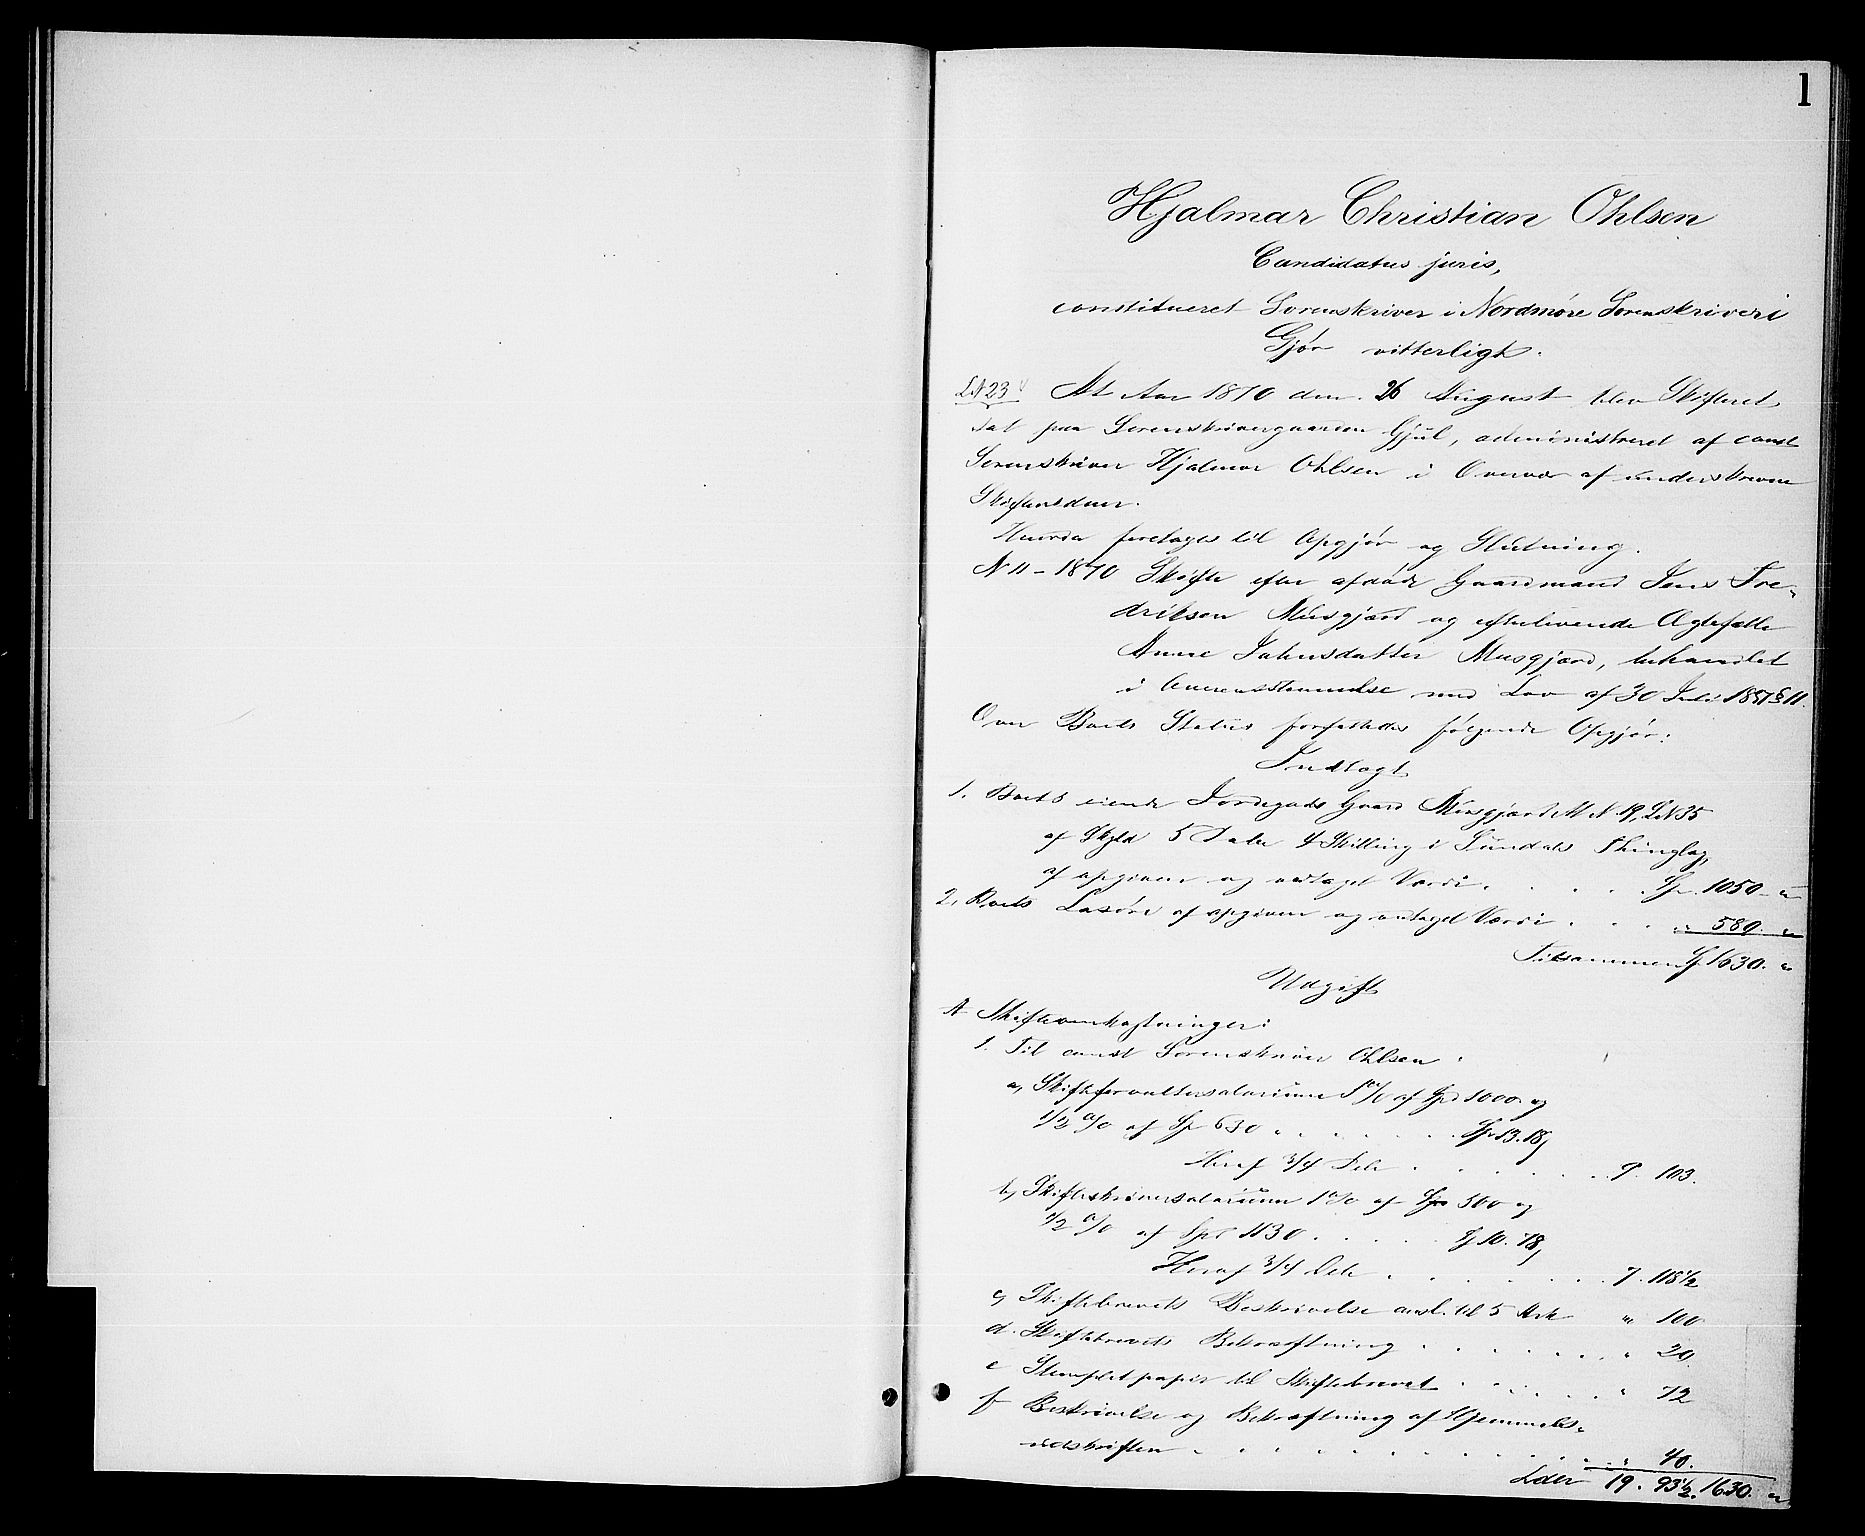 1
Hjalmar Christian Ohlsen
Candidatus juris,
constitueret Sorenskriver i Nordmøre Sorenskriveri
Gjør vitterligt:
At Aar 1870 den 26 August blev Skifteret
sat paa Sorenskrivergaarden Gjül, administreret af const
Sorenskriver Hjalmar Ohlsen i Overvær af underskrevne
Skiftevidner.
Hvorda foretages til Opgjør og Slutning.
N 11 - 1870 Skifte efter afdøde Gaardmand Jens Fre-
driksen Musgjærd og efterlevende Ægtefælle
Anne Johnsdatter Musgjærd, behandlet
i Overensstemmelse med Lov af 30 Juli 1851 § 11.
Over Boets Status forfattedes følgende Opgjør:
Indtægt
1. Boets eiende Jordegods Gaard Musgjærd M N 19, L N 35
af Skyld 5 Daler 4 Skilling i Sundals Thinglag,
af opgiven og vedtaget Værdi . . . . Sp. 1050 - "
2, Boets Løsøre af opgiven og vedtaget Værdi . . . " 580. "
Tilsammen Sp 1630. "
Udgift
A Skifteomkostninger:
1. Til const Sorenskriver Ohlsen:
a, Skifteforvaltersalarium 1 % af Spd 1000 og
1/2 % af Sp 630 . . . . . Sp 13. 18,
Heraf 3/4 Dele . . . . . 9. 103.
b, Skifteskriversalarium 1 % af Spd 500 og
1/2 % af Spd 1130 . . . . . Sp 10. 78,
Heraf 3/4 Dele . . . . . 7. 118 1/2
c, Skiftebrevets Beskrivelse ansl. til 5 Ark " 100
d. Skiftebrevets Bekræftning . . . . . " 20.
e Stemplet papir til Skiftebrevet . . . . . " 72
f Beskrivelse og Bekræftning af Hjemmels-
udskriften . . . . . " 40.
Lder 19. 93 1/2. 1630. "